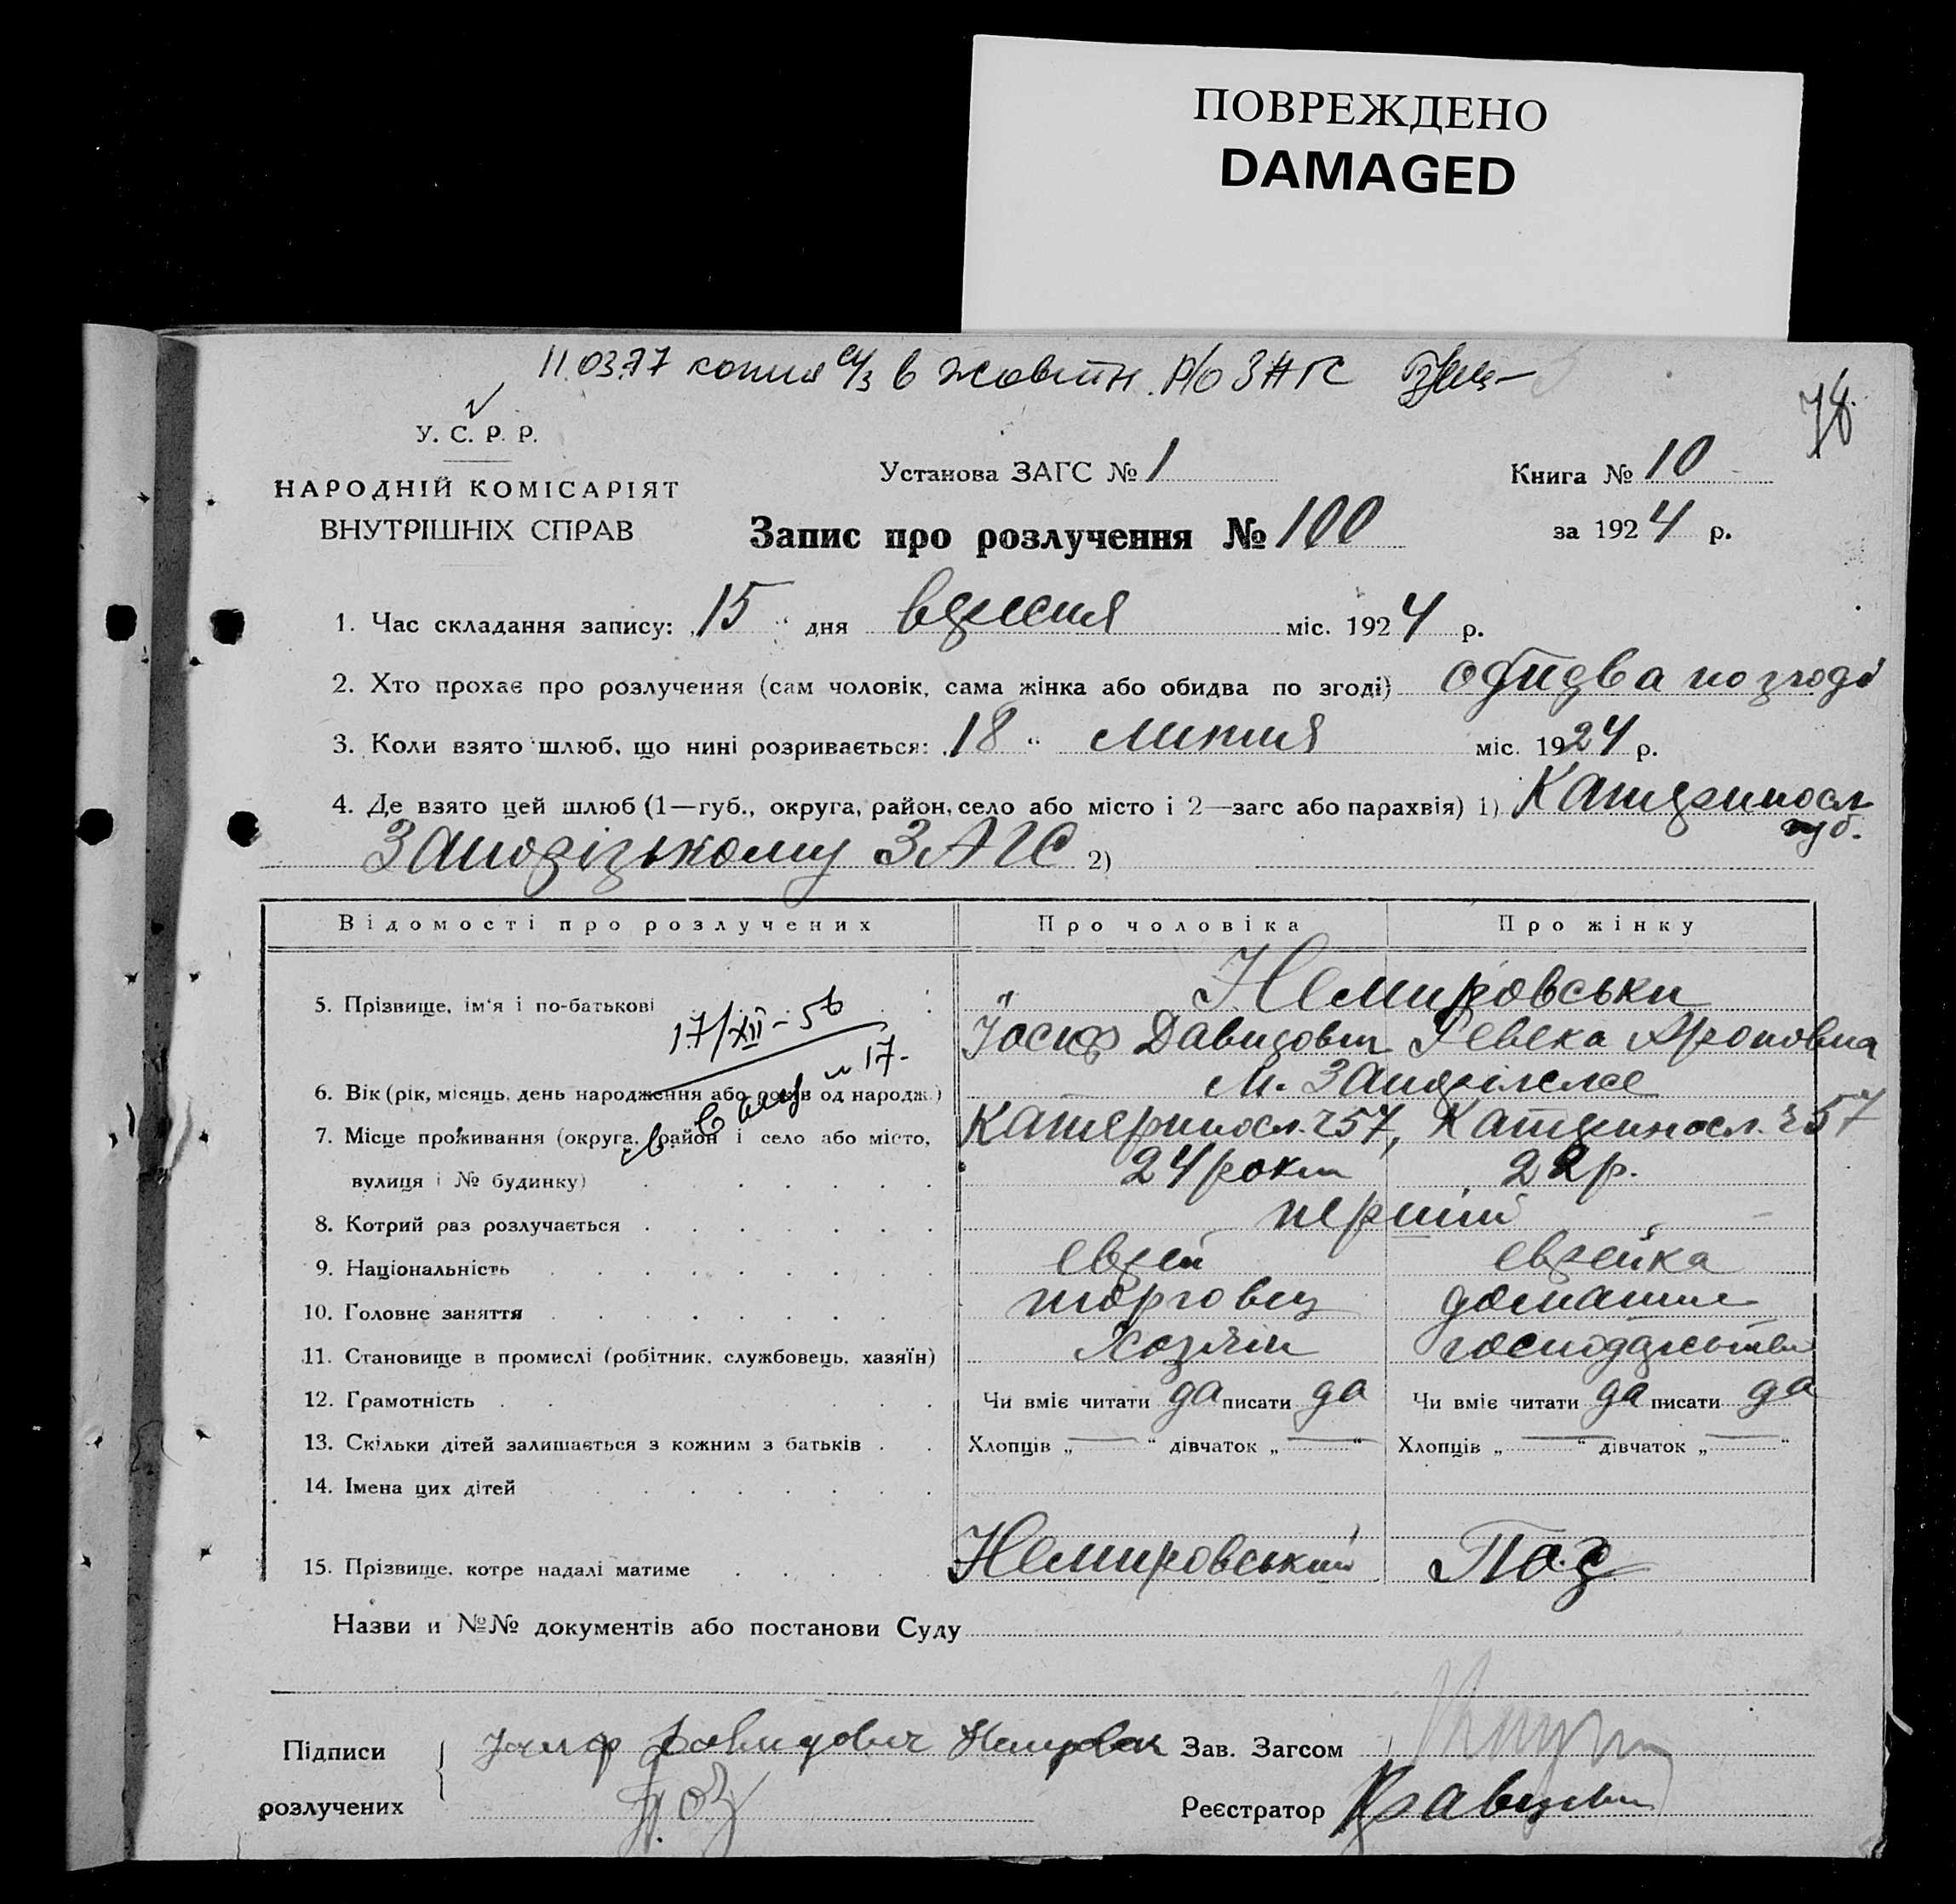 ПОВРЕЖДЕНО
DAMAGED
11.03.77 копия в жовтн. р/о ЗАГС
78
У. С. Р. Р.
НАРОДНІЙ КОМІСАРІЯТ
ВНУТРІШНІХ СПРАВ
Установа ЗАГС № 1
Книга № 10
Запис про розлучення № 100
за 1924 р.
1. Час складання запису: „15“ дня вересня міс. 1924 р.
2. Хто прохає про розлучення (сам чоловік, сама жінка або обидва по згоді) обидва по згоді
3. Коли взято шлюб, що нині розривається: „18“ липня міс. 1924 р.
4. Де взято цей шлюб (1—губ., округа, район, село або місто і 2—загс або парахвія) 1) Катериносл. губ.
Запорізькому ЗАГС 2)
Відомості про розлучених Про чоловіка Про жінку
5. Прізвище, ім'я і по-батькові Немировськи
Йосиф Давидович Ревека Ароновна
17/XII-56
6. Вік (рік, місяць, день народження або років од народж.) м. Запоріжже
7. Місце проживання (округа, район і село або місто, Катериносл. 257, Катериносл. 257
вулиця і № будинку) 24 роки 22 р.
8. Котрий раз розлучається перший
9. Національність еврей еврейка
10. Головне заняття торговец домашнє
11. Становище в промислі (робітник, службовець, хазяїн) Хозяін господарство
12. Грамотність Чи вміє читати да писати да Чи вміє читати да писати да
13. Скільки дітей залишається з кожним з батьків Хлопців „—“ дівчаток „—“ Хлопців „—“ дівчаток „—“
14. Імена цих дітей
15. Прізвище, котре надалі матиме Немировський Поз
Назви и №№ документів або постанови Суду
Підписи Иосиф Давидович Немировск Зав. Загсом
розлучених Поз Реєстратор